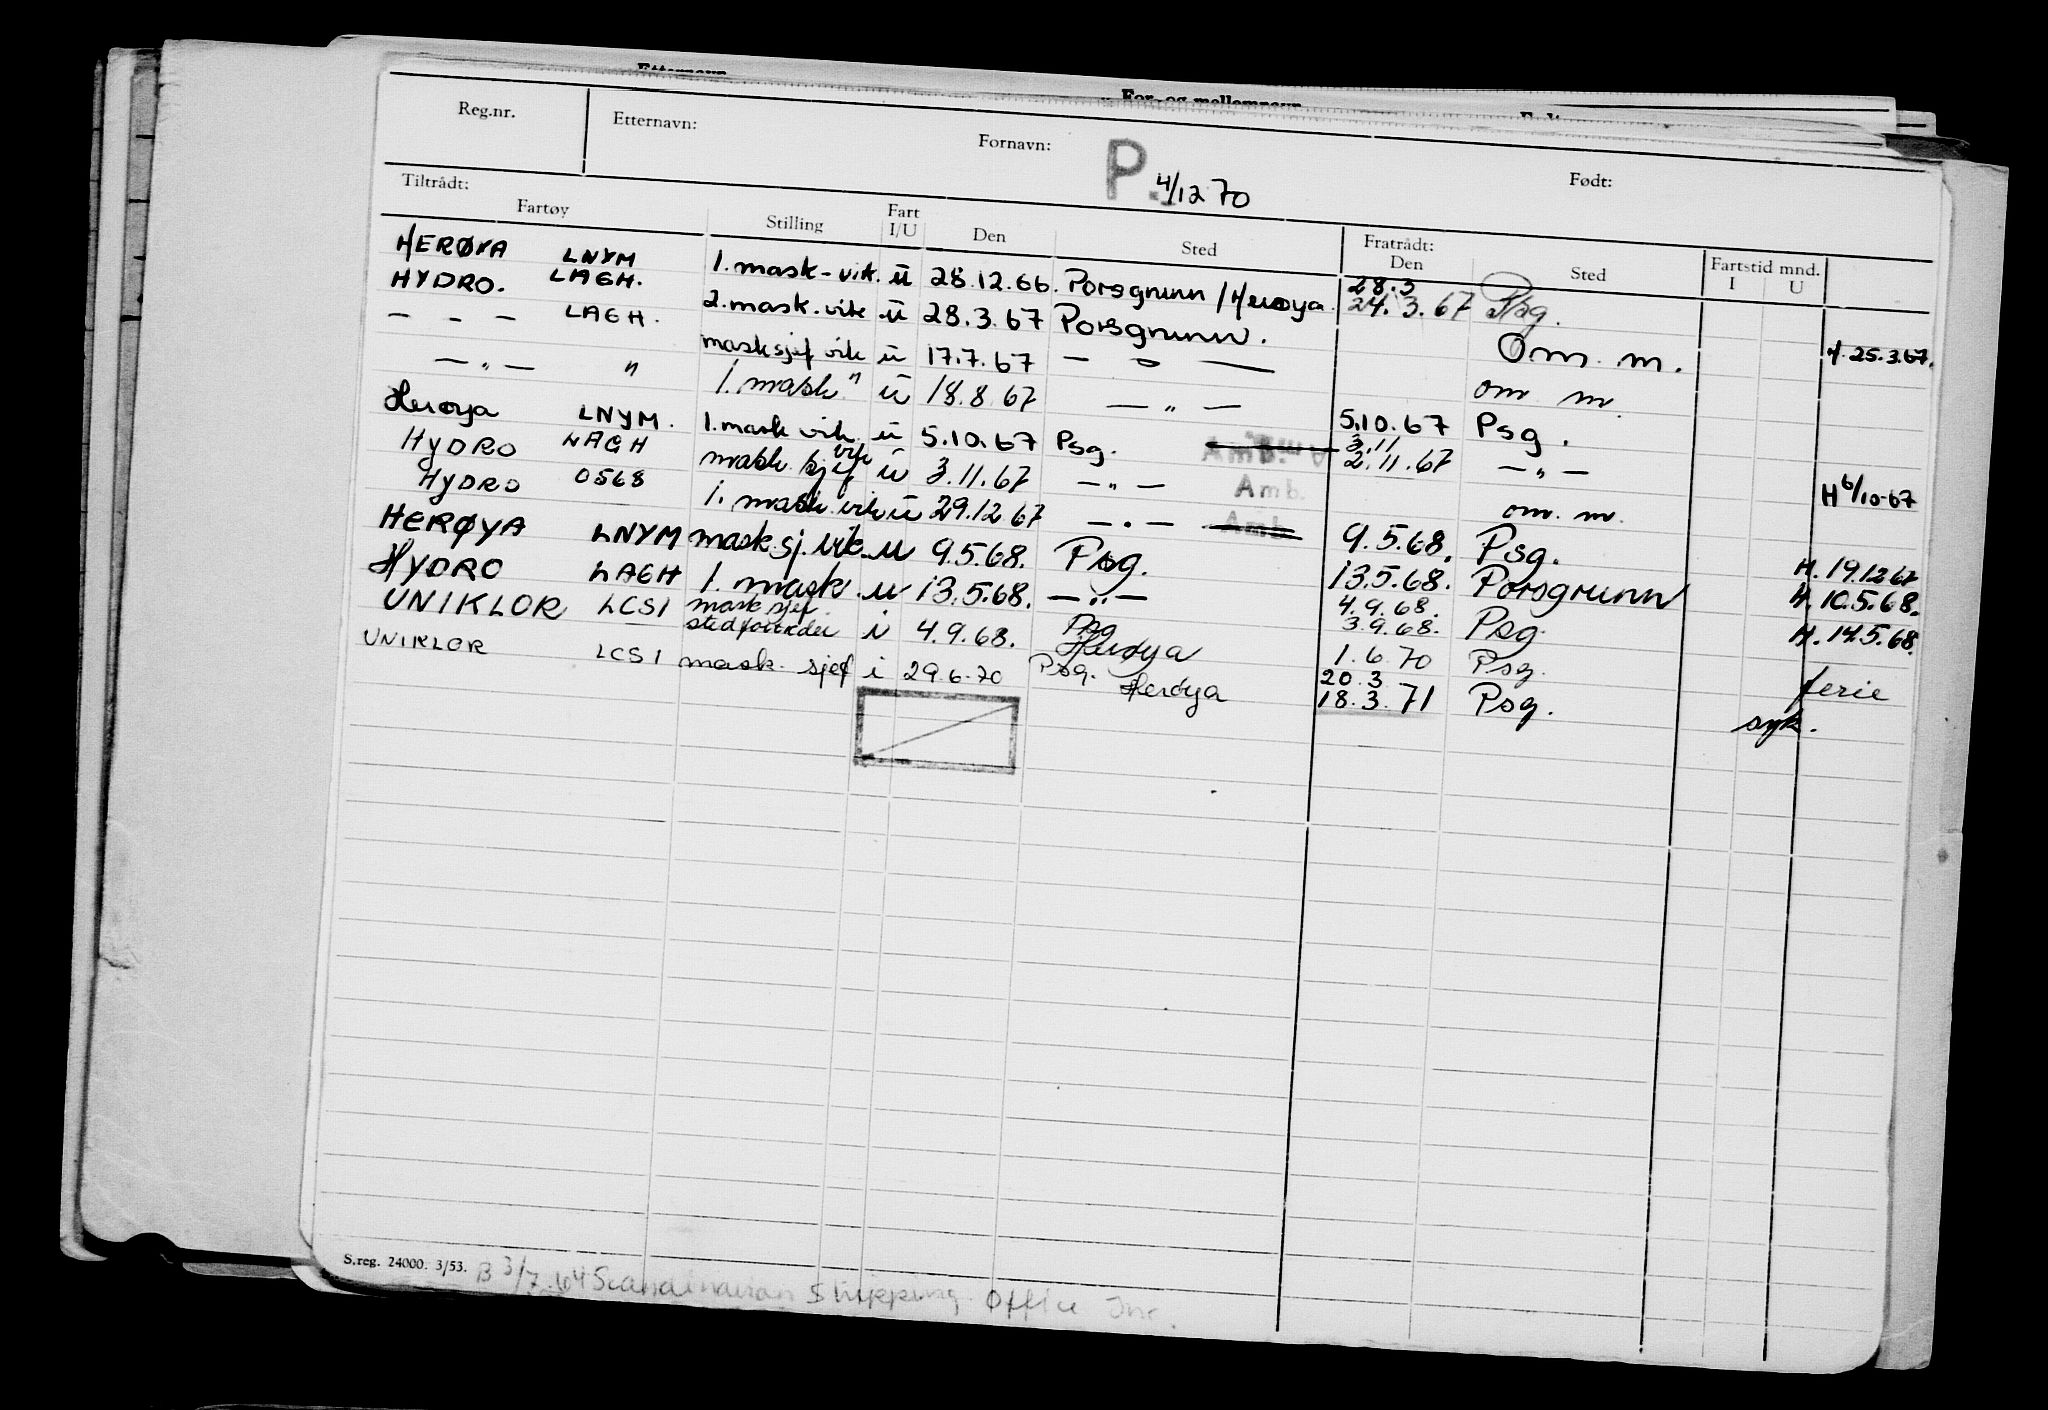 Etternavn
For- og mellemnavn
Reg.nr. Etternavn: Fornavn: P. 4/12 70 Født:
Tiltrådt: Fratrådt:
Fartøy Stilling Fart I/U Den Sted Den Sted Fartstid mnd. I U
HERØYA LNYM 1. mask-vik. u 28.12.66. Porsgrunn / Herøya. 28.3 24.3.67 Psg.
HYDRO. LAGH. 2. mask. vik u 28.3.67 Porsgrunn. Om. m. H. 25.3.67.
— — — LAGH. mask sjef vik u 17.7.67 — " — om m.
— " — " 1. mask " u 18.8.67 — " — 5.10.67 Psg.
Herøya LNYM. 1. mask vik. u 5.10.67 Psg. Amb. 3.11 2.11.67 — " —
HYDRO LAGH mask. sjef vik u 3.11.67 — " — Amb. om. m. H 6/10-67
HYDRO 0568 1. mask. vik u 29.12.67 — " — Amb. 9.5.68. Psg.
HERØYA LNYM mask. sj. vik. u 9.5.68. Psg. 13.5.68. Porsgrunn H. 19.12 67
HYDRO LAGH 1. mask. u 13.5.68. — " — 4.9.68. 3.9.68. Psg. H. 10.5.68.
UNIKLOR LCSI mask sjef. stedfortreder i 4.9.68. Psg Herøya 1.6.70 Psg. H. 14.5.68.
UNIKLOR LCSI mask. sjef i 29.6.70 Psg. Herøya 20.3 18.3.71 Psg. ferie
syk.
S.reg. 24000. 3/53. B 3/7.64 Scandinavian Shipping Office Inc.